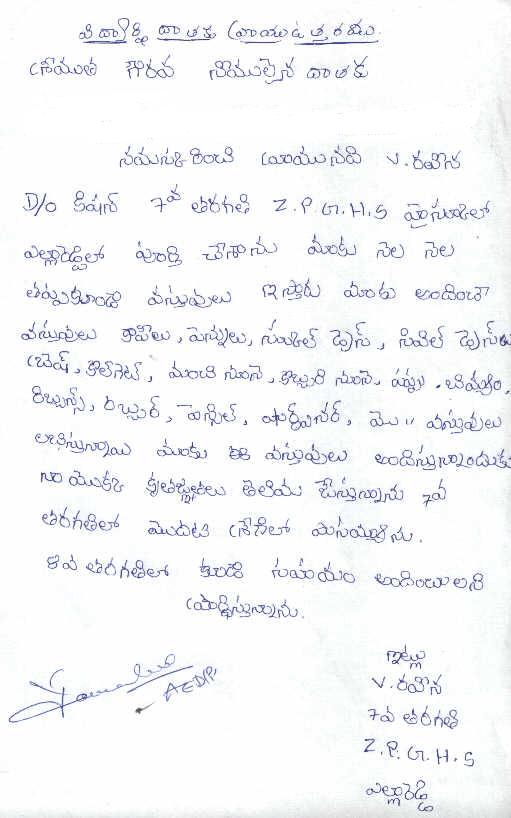 విద్యార్థి దాతకు వ్రాయు ఉత్తరము.
శ్రీమతి గౌరవ నీయులైన దాతకు
నమస్కరించి వ్రాయునది V. రవీన
D/O కిషన్ 7వ తరగతి Z.P.G.H.S హైస్కూల్లో
ఎల్లారెడ్డిలో పూర్తి చేశాను మాకు నెల నెల
తప్పకుండా వస్తువులు ఇస్తారు మాకు అందించే
వస్తువులు కాపీలు, పెన్నులు, స్కూల్ డ్రెస్, సివిల్ డ్రెస్
బ్రెష్, కోల్గెట్, మంచి నూనె, కొబ్బరి నూనె, సబ్బు,
రిబ్బన్స్, రబ్బర్, పెన్సిల్, షార్ప్‌నర్, మొ॥ వస్తువులు
లభిస్తున్నాయి మాకు ఈ వస్తువులు అందిస్తున్నందుకు
నా యొక్క కృతజ్ఞతలు తెలియ జేస్తున్నాను 7వ
తరగతిలో మొదటి శ్రేణిలో పాసయ్యాను.
8వ తరగతిలో కూడా సహాయం అందించాలని
ప్రార్థిస్తున్నాను.
AEDP
ఇట్లు
V. రవీన
7వ తరగతి
Z.P.G.H.S
ఎల్లారెడ్డి